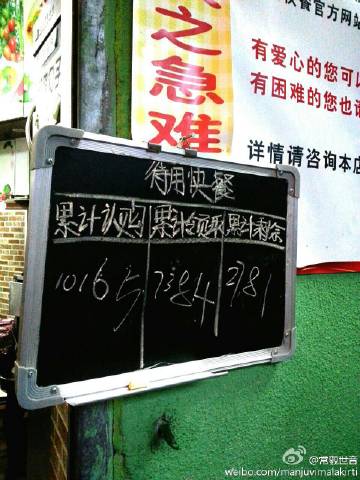 之急难
餐官方网站
有爱心的您可
有困难的您也
详情请咨询本店
待用快餐
累计认购 累计领取 累计剩余
10165 7384 2781
@常毅世音
weibo.com/manjuvimalakirti